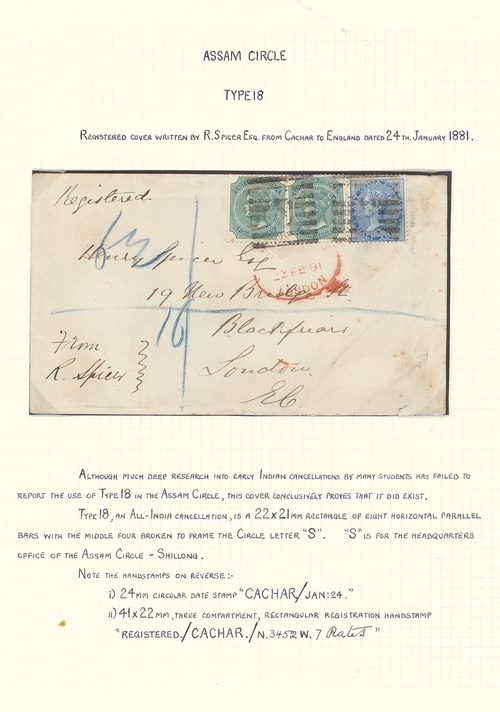 ASSAM CIRCLE
TYPE 18
REGISTERED COVER WRITTEN BY R. SPICER ESQ. FROM CACHAR TO ENGLAND DATED 24TH. JANUARY 1881.
Registered
Henry Spicer Esq
LONDON
19 New Bridge St.
16
Blackfriars
From
R. Spicer
London
E.C.
ALTHOUGH MUCH DEEP RESEARCH INTO EARLY INDIAN CANCELLATIONS BY MANY STUDENTS HAS FAILED TO
REPORT THE USE OF TYPE 18 IN THE ASSAM CIRCLE, THIS COVER CONCLUSIVELY PROVES THAT IT DID EXIST.
TYPE 18, AN ALL-INDIA CANCELLATION, IS A 22 X 21MM RECTANGLE OF EIGHT HORIZONTAL PARALLEL
BARS WITH THE MIDDLE FOUR BROKEN TO FRAME THE CIRCLE LETTER "S". "S" IS FOR THE HEADQUARTERS
OFFICE OF THE ASSAM CIRCLE - SHILLONG.
NOTE THE HANDSTAMPS ON REVERSE:-
i) 24MM CIRCULAR DATE STAMP "CACHAR/JAN:24."
ii) 41 X 22MM, THREE COMPARTMENT, RECTANGULAR REGISTRATION HANDSTAMP
"REGISTERED./CACHAR./N. 3452 W. 7 Rates"